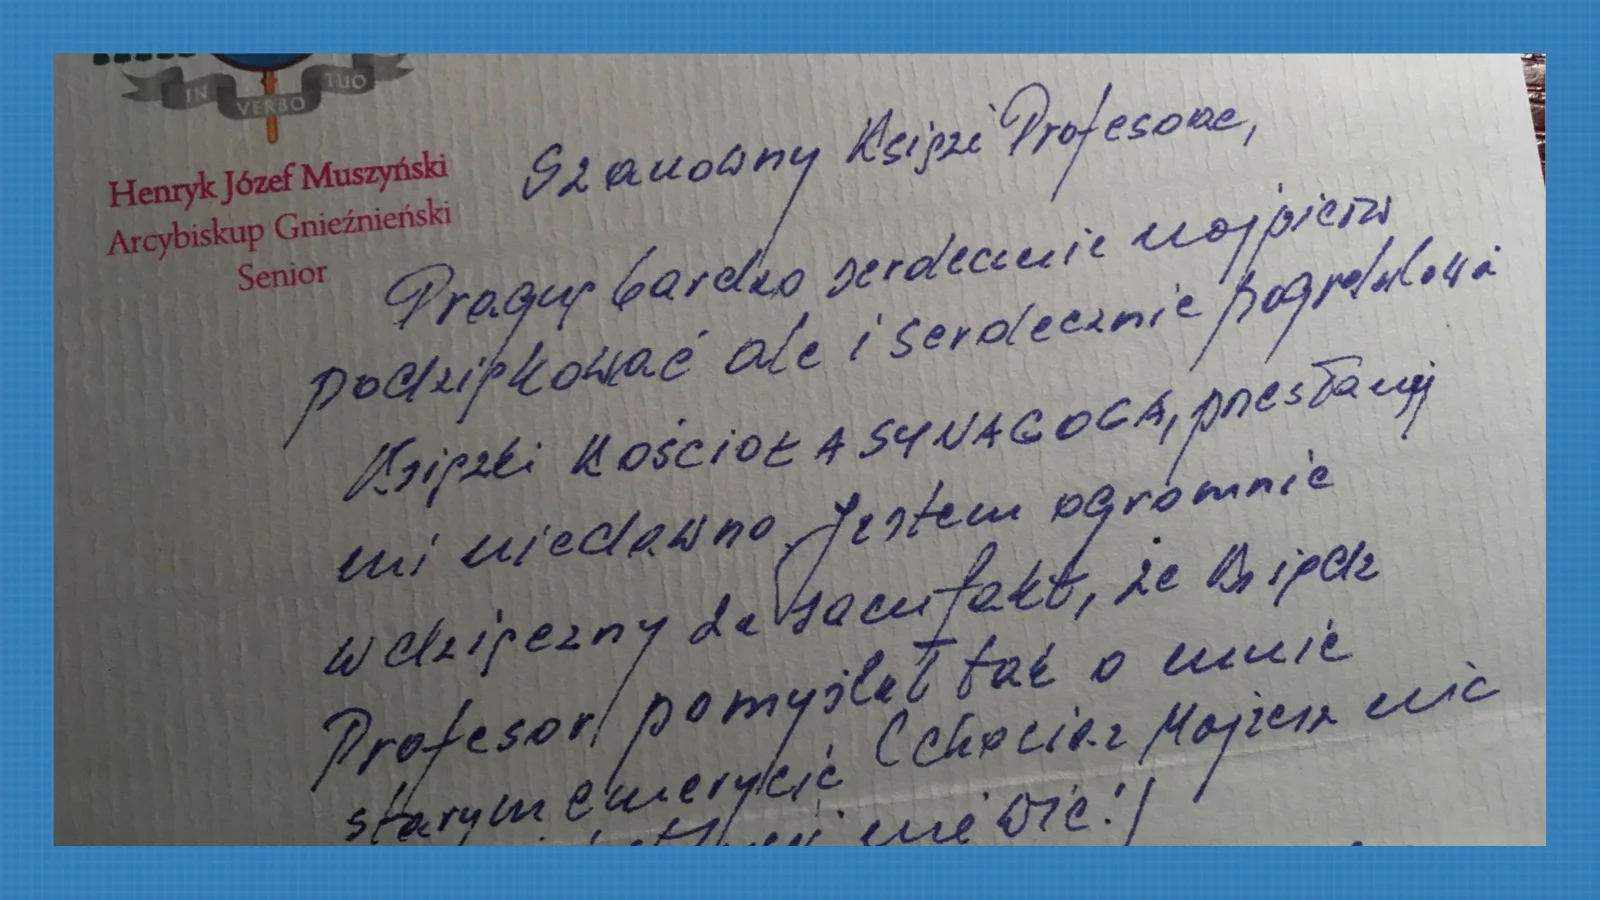 IN VERBO TUO
Henryk Józef Muszyński
Arcybiskup Gnieźnieński
Senior
Szanowny Księże Profesorze,
Pragnę bardzo serdecznie najpierw
podziękować ale i serdecznie pogratulować
Książki KOŚCIÓŁ A SYNAGOGA, przesłanej
mi niedawno. Jestem ogromnie
wdzięczny za sam fakt, że Ksiądz
Profesor pomyślał tak o mnie
starym emerycie (chociaż Mojżesz nic
nie wie!)